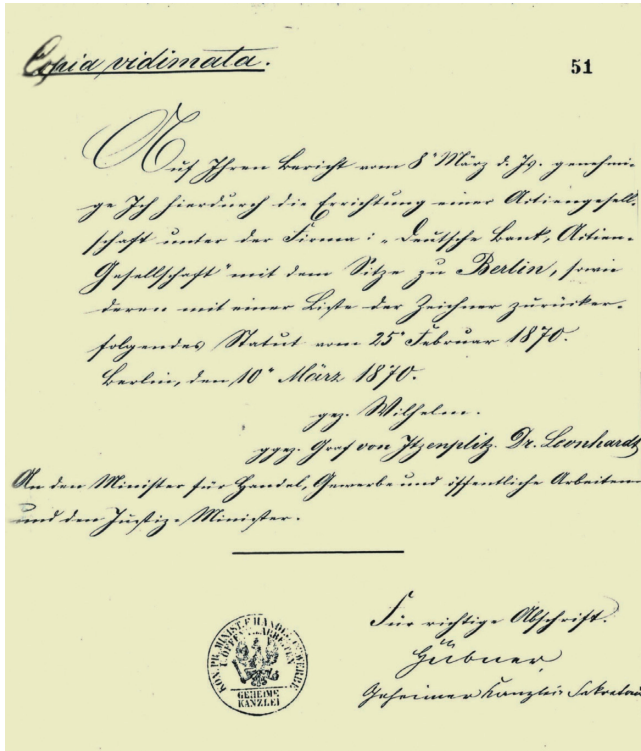 Copia vidimata.
51
Auf Ihren Bericht vom 8t März d. Js. genehmi-
ge Ich hierdurch die Errichtung einer Actiengesell-
schaft unter der Firma: „Deutsche Bank, Actien-
Gesellschaft" mit dem Sitze zu Berlin, sowie
deren mit einer Liste der Zeichner zurücker-
folgendes Statut vom 25t Februar 1870.
Berlin, den 10t März 1870.
gez. Wilhelm.
ggez. Graf von Itzenplitz. Dr. Leonhardt
An den Minister für Handel, Gewerbe und öffentliche Arbeiten
und den Justiz-Minister.
Für richtige Abschrift.
Hübner
Geheimer Kanzlei Sekretair
KÖN. PR. MINIST. F. HANDEL GEWERBE
U. ÖFFENTL. ARBEITEN
GEHEIME
KANZLEI